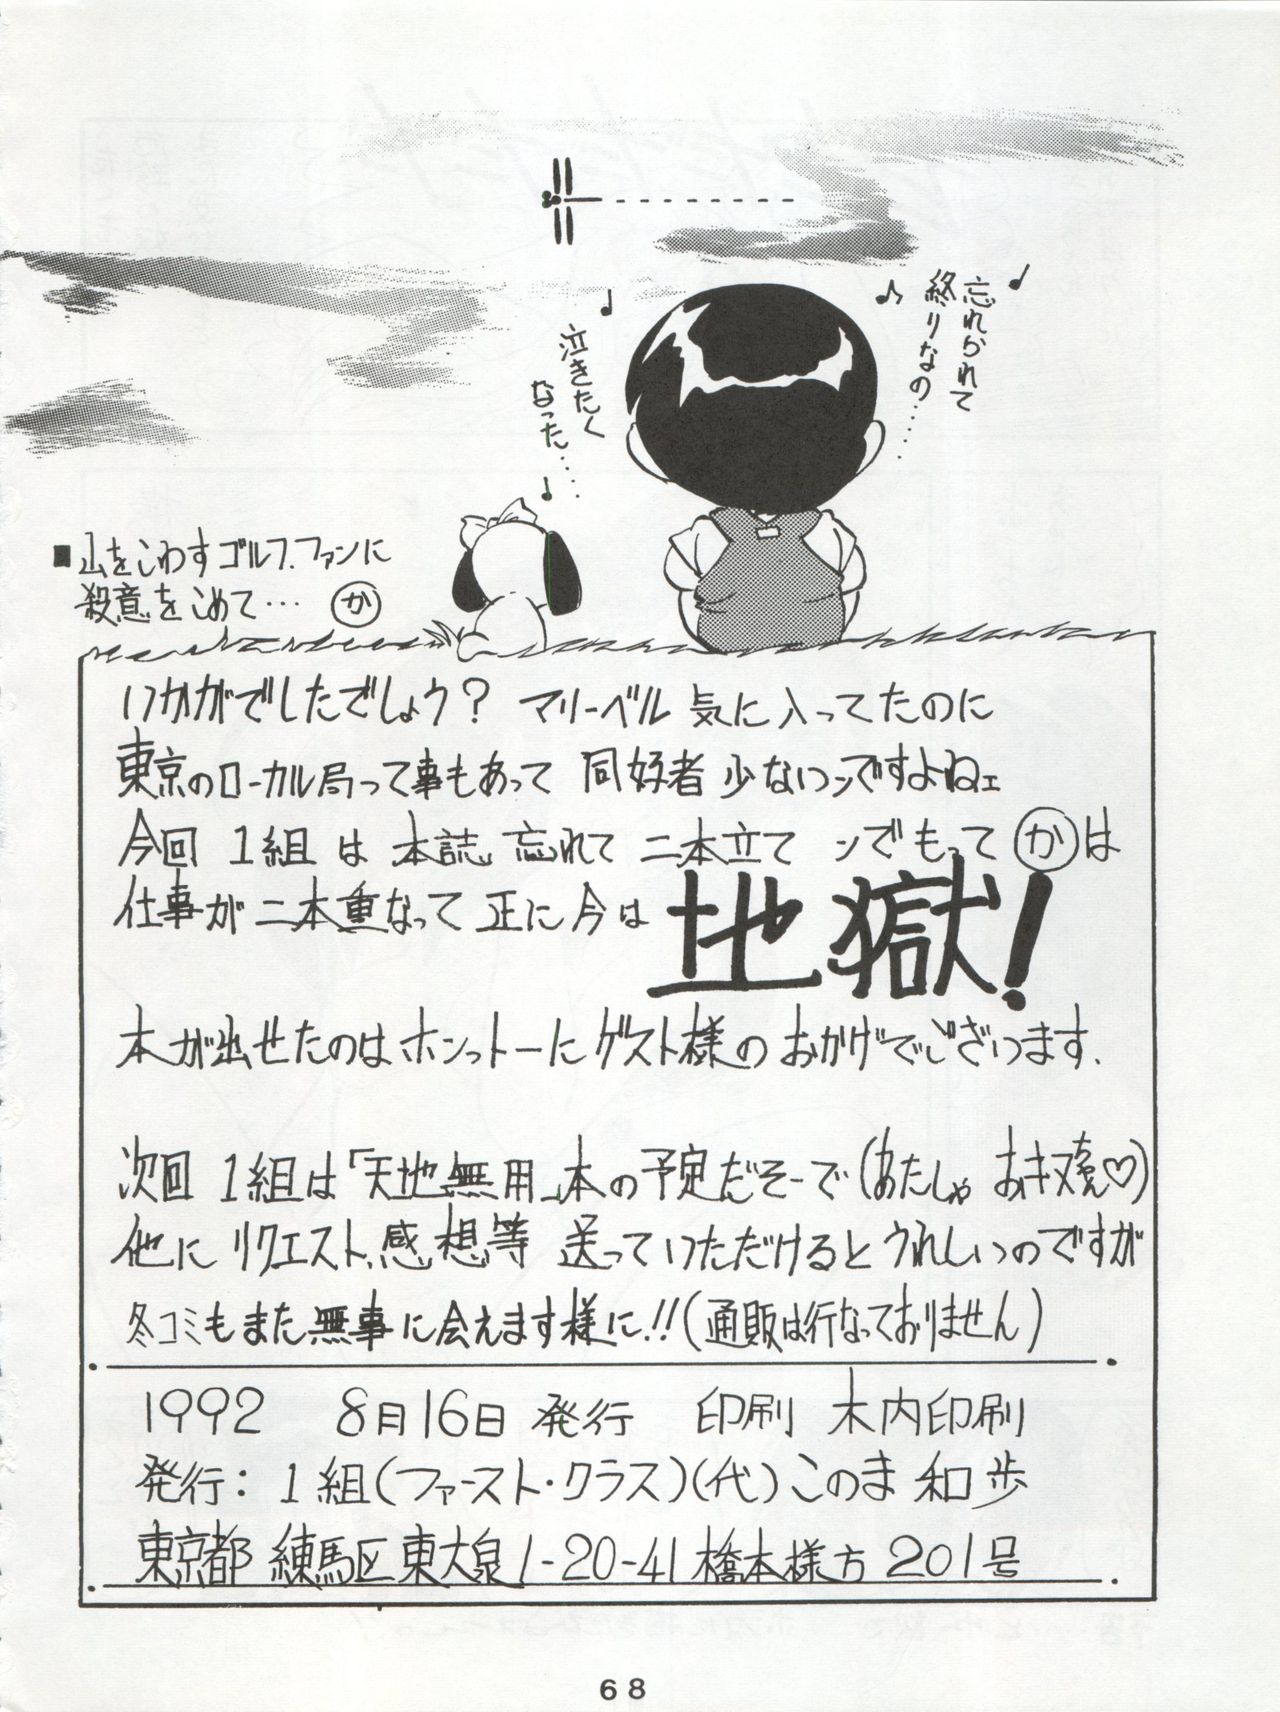 忘れられて
終りなの……
泣きたく
なった……
■山をこわすゴルフファンに
殺意をこめて… か
いかがでしたでしょう？ マリーベル 気に入ってたのに
東京のローカル局って事もあって 同好者 少ないンですよねェ
今回 1組は 本誌 忘れて 二本立て ンでもって かは
仕事が二本重なって 正に今は 地獄！
本が出せたのはホンっトーにゲスト様のおかげでございます.
次回 1組は「天地無用」本の予定だそーで(あたしゃ おキヌちゃん♡)
他に リクエスト、感想等 送っていただけるとうれしいのですが
冬コミもまた無事に会えます様に!!(通販は行なっておりません)
1992 8月16日 発行 印刷 木内印刷
発行: 1組(ファースト・クラス)(代)このま 和歩
東京都 練馬区東大泉1-20-41橋本様方 201号
68